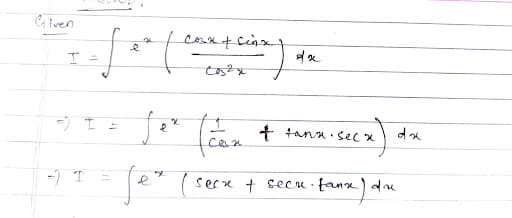 Given
I = ∫ e^x ( (cosx + sinx) / cos²x ) dx
=) I = ∫ e^x ( 1/cosx + tanx · sec x ) dx
=) I = ∫ e^x ( secx + secx · tanx ) dx